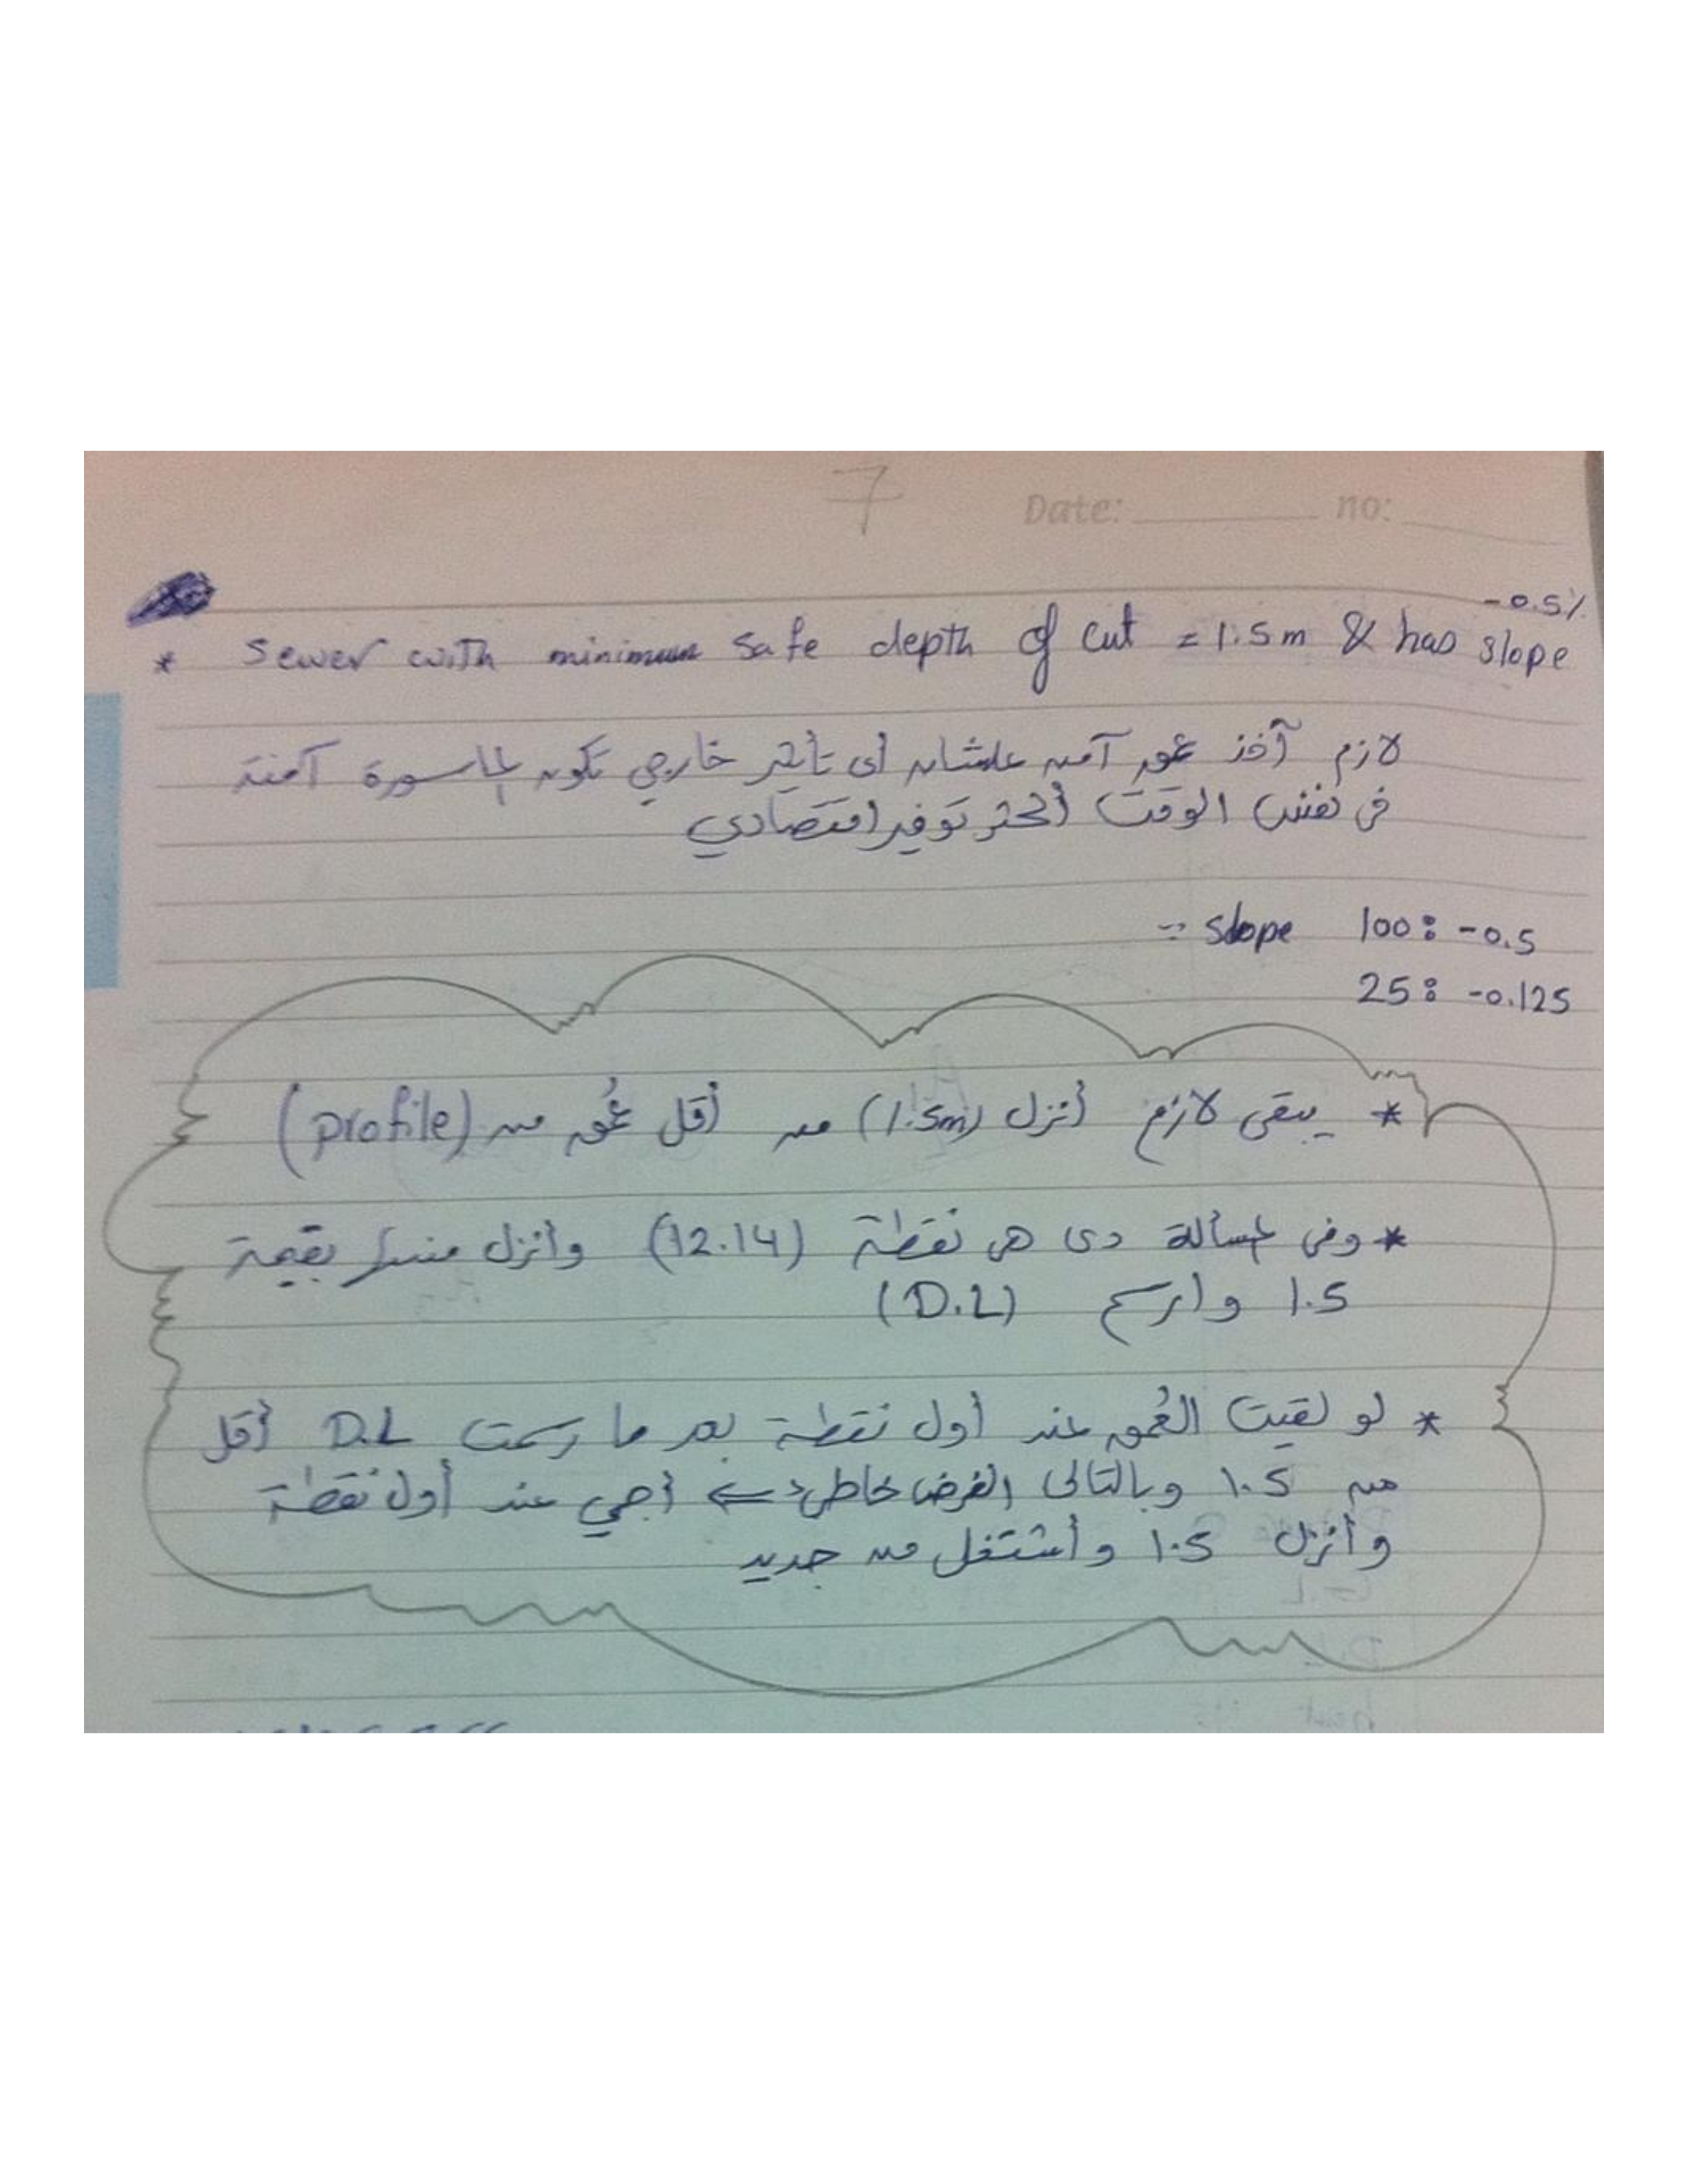 7
Date: no:
-0.5%
* Sewer with minimum safe depth of cut = 1.5m & has slope
لازم آخذ عمق آمن علشان أى تأثير خارجي تكون الماسورة آمنة
فى نفس الوقت أكثر توفير اقتصادي
∵ slope 100: -0.5
25: -0.125
* يبقى لازم أنزل (1.5m) من أقل عُمق من (profile)
* وفى المسألة دى هى نقطة (12.14) وأنزل منها بقيمة
1.5 وارسم (D.L)
* لو لقيت العُمق عند أول نقطة بعد ما رسمت D.L أقل
من 1.5 وبالتالى الفرض خاطئ ⇐ أجي عند أول نقطة
وأنزل 1.5 وأشتغل من جديد